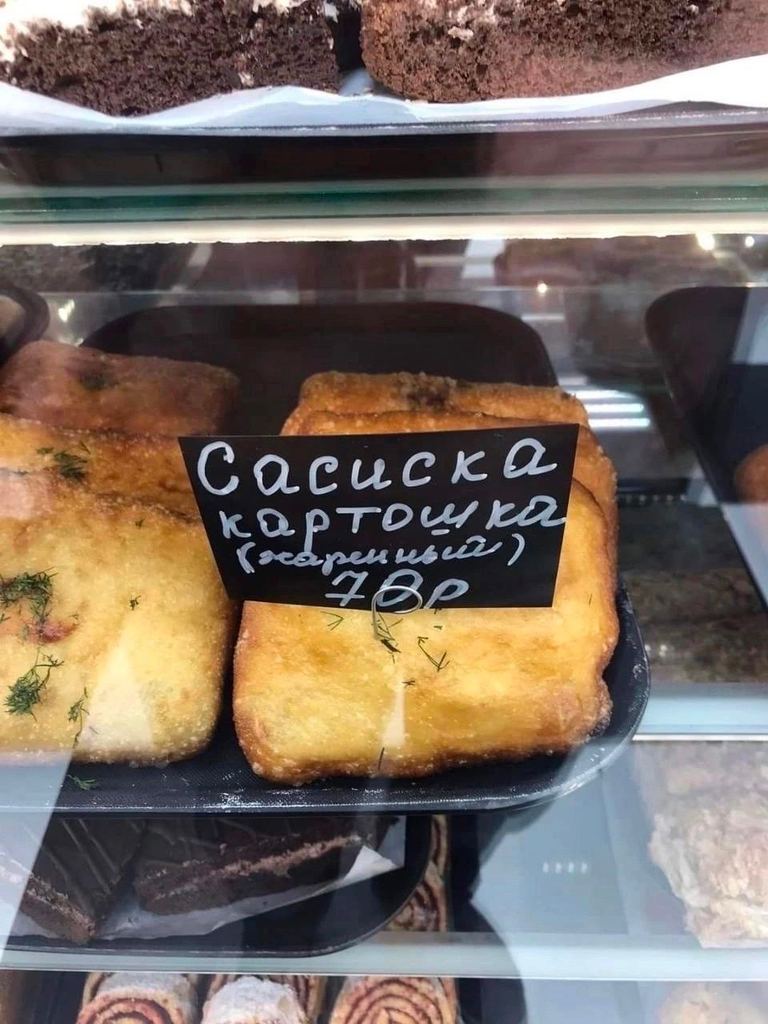 Сосиска
картошка
(жаренный)
70р